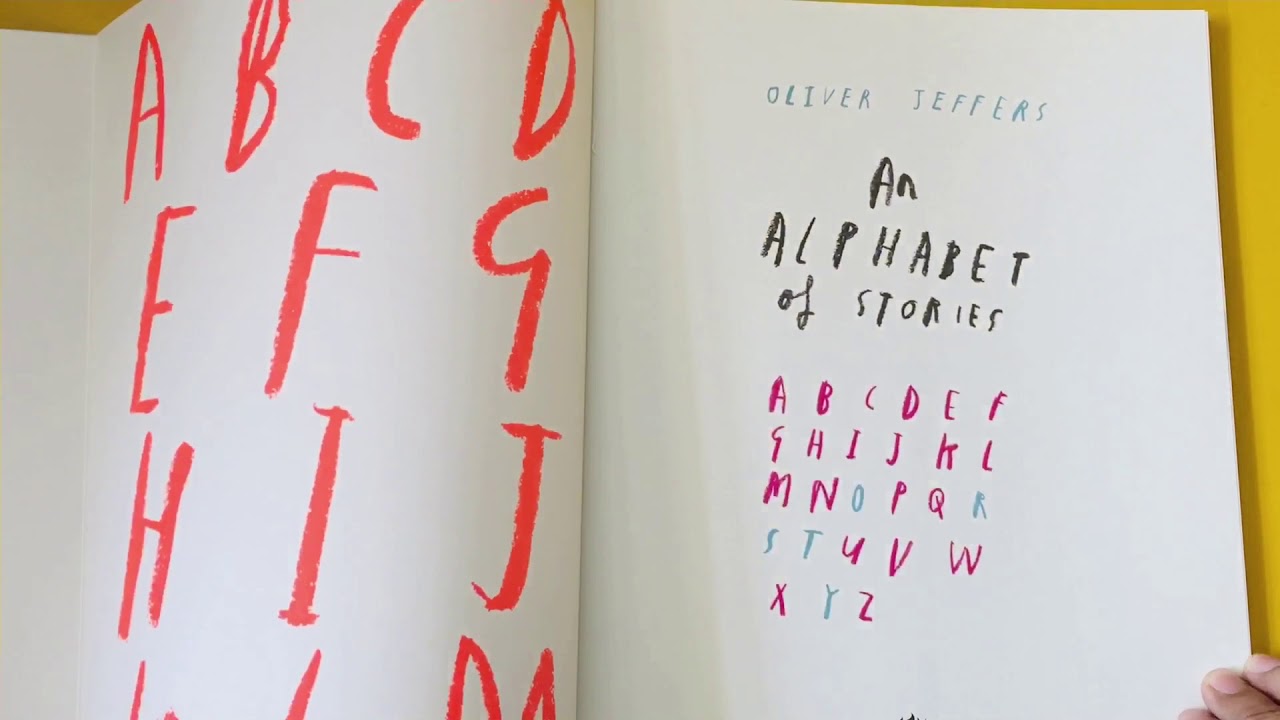 A B C D
E F G
H I J
M
OLIVER JEFFERS
An
ALPHABET
of STORIES
A B C D E F
G H I J K L
M N O P Q R
S T U V W
X Y Z